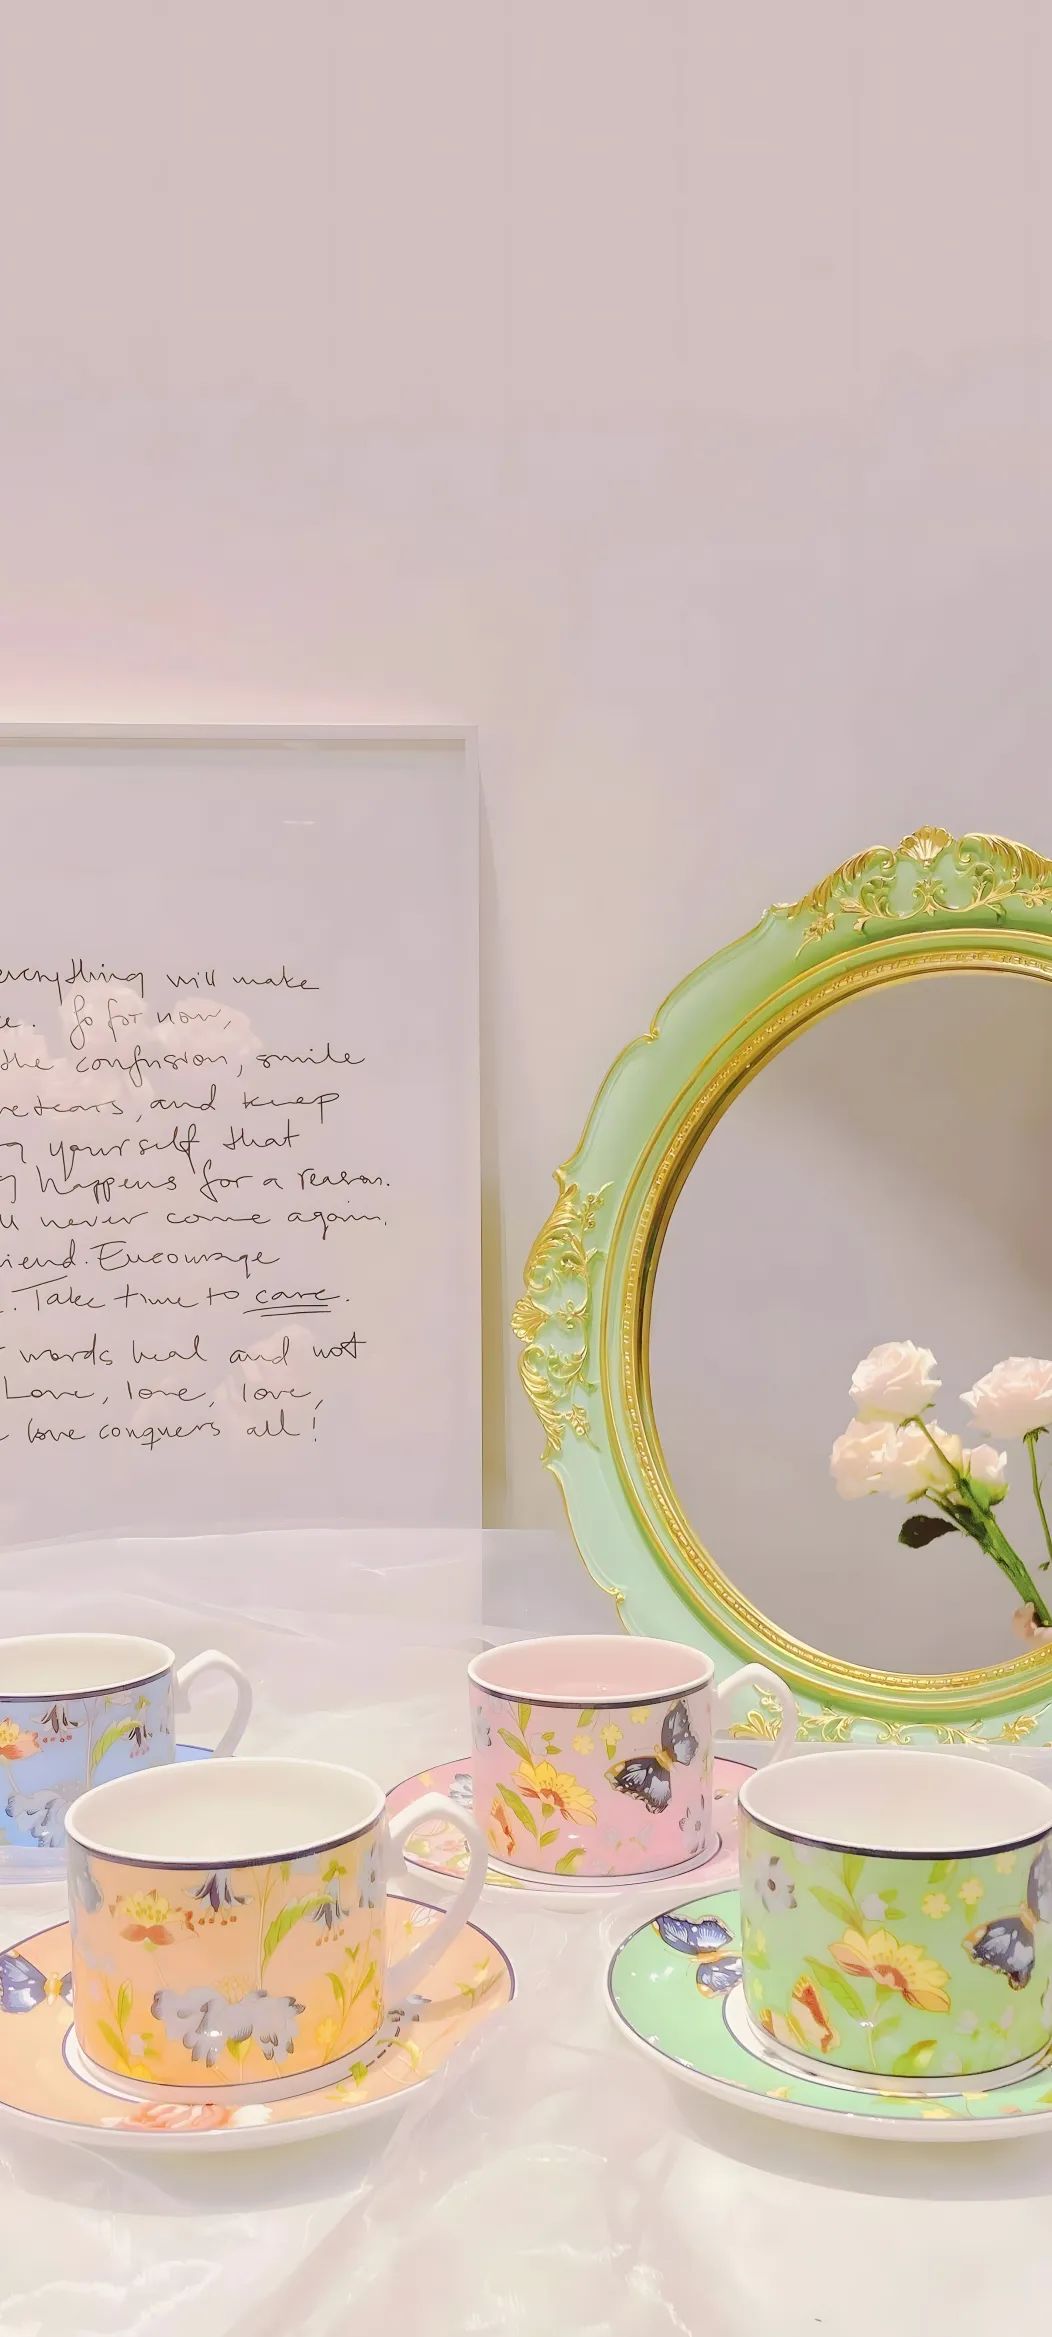 everything will make
ce. So for now,
the confusion, smile
he tears, and keep
g yourself that
g happens for a reason.
u never come again.
riend. Encourage
. Take time to care.
words heal and not
Love, love, love,
love conquers all!